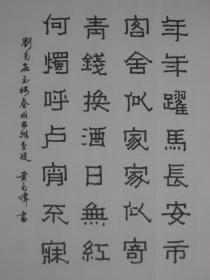 年年躍馬長安市
客舍似家家似寄
青錢換酒日無
紅
何燭呼盧宵不寐
劉克莊玉樓春戲林推
黃 書